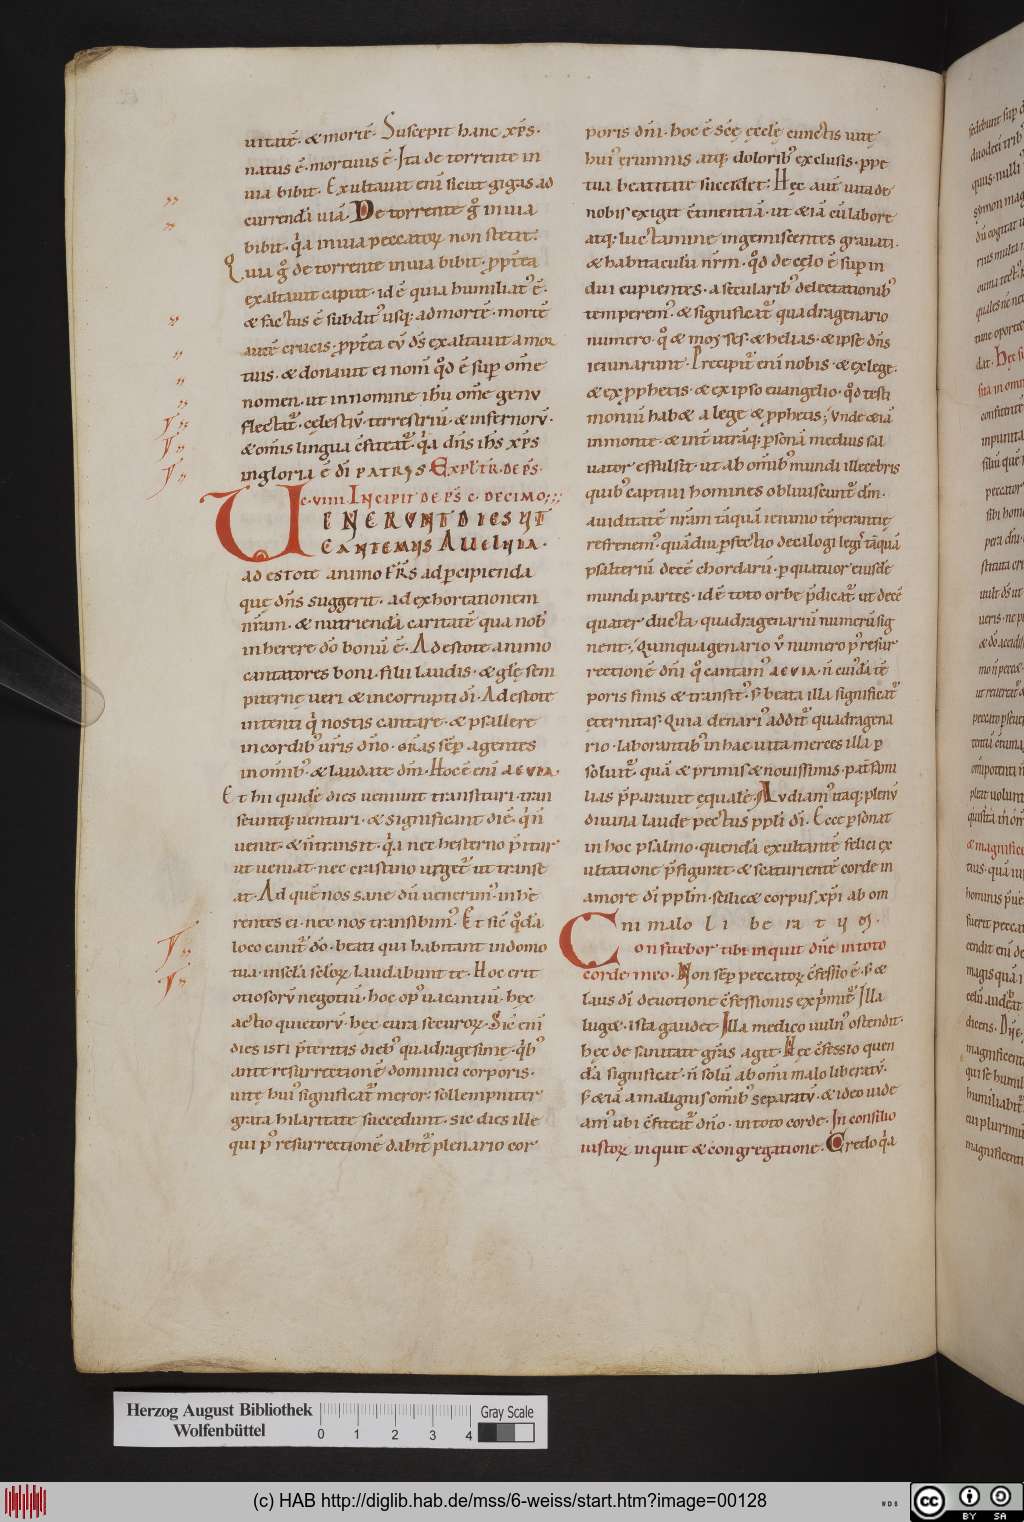 uitatē. & mortē. Suscepit hanc xp̄s.
natus ē. mortuus ē. Ita de torrente in
uia bibit. Exultauit enī sicut gigas ad
currendā uiā. De torrente g̊ in uia
bibit. q̇a in uia peccatorꝝ non stetit.
Quia g̊ de torrente in uia bibit. ꝓpt̄ea
exaltauit caput. id ē quia humiliatꝰ ē.
& factus ē subditꝰ usq; ad mortē. mortē
autē crucis. ꝓpt̄ea eū d̄s exaltauit a mor
tuis. & donauit ei nom̄ qd̊ ē sup̄ om̄e
nomen. ut in nomine ih̄u om̄e genu
flectat᷑. cęlestiū. terrestriū. & infernorū.
& om̄is lingua c̄fiteat᷑. q̇a dn̄s ih̄s xp̄s
in gloria ē dī PATRIS EXPL TR̄. DE PS̄.
C. VIIII. INCIPIT DE PS̄. C. DECIMO.
UENERUNT DIES UT
CANTEMUS ALLELUIA.
ad estote animo FR̄S ad ꝑcipienda
que dn̄s suggerit. ad exhortationem
nr̄am. & nutriendā caritatē qua nob̄
inherere dō bonū ē. Adestote animo
cantatores boni. filii laudis. & glę sem
piternę ueri & incorrupti dī. Adestote
intenti q̇ nostis cantare. & psallere
in cordibꝰ ur̄is dn̄o. gr̄as sēp agentes
in om̄ibꝰ. & laudate dm̄. Hoc ē enī AEUIA.
Et hii quidē dies ueniunt transituri. tran
seuntq; uenturi. & significant diē. q̇ n̄
uenit. & n̄ transit. q̇a nec hesterno p̄itur
ut ueniat. nec crastino urget᷑ ut transe
at. Ad quē nos sane dū uenerimꝰ. inhe
rentes ei. nec nos transibimꝰ. Et sic̄ qd̊ā
loco canit᷑ dō. beati qui habitant in domo
tua. in sc̄la sc̄lorꝝ laudabunt te. Hoc erit
otiosorū negotiū. hoc opꝰ uacantiū. hęc
actio quietorū. hęc cura securorꝝ. Sic̄ enī
dies isti p̄teritis diebꝰ quadragesimę. q̇bꝰ
ante resurrectionē dominici corporis.
uitę huiꝰ significat᷑ meror: sollempniter
grata hilaritate succedunt. sic dies ille
qui pꝰ resurrectionē dabit᷑ plenario cor
poris dn̄i. hoc ē sc̄ę ęcclę cunctis uitę
huiꝰ erumnis atq; doloribꝰ exclusis. ꝑpe
tua beatitate succedet: Hęc aut̄ uita de
nobis exigit c̄tinentiā. ut & iā cū labore
atq; luctamine ingemiscentes grauati.
& habitaculū nr̄m. qd̊ de cęlo ē sup̄ in
dui cupientes. a secularibꝰ delectationibꝰ
temperemꝰ. & significat᷑ quadragenario
numero. q̊ & moyses. & helias. & ipse dn̄s
ieiunarunt. Precipit᷑ enī nobis. & ex lege.
& ex ꝓphetis. & ex ipso euangelio. qd̊ testi
moniū hab& a lege & ꝓphetis; Unde & iā
in monte. & int̄ utrāq; ꝑsonā medius sal
uator effulsit. ut ab om̄ibꝰ mundi illecebris
quibꝰ captiui homines obliuiscunt᷑ dm̄.
auiditatē nr̄am tāquā ieiunio tēperantię
refrenemꝰ. quādiu ꝑfectio decalogi leg̊ tāquā
psalteriū decē chordarū. ꝑ quatuor eiusdē
mundi partes. id ē toto orbe p̄dicat᷑. ut decē
quater ducta. quadragenariū numerū sig
nent. Quinquagenario ů numero pꝰ resur
rectionē dn̄i q̊ cantamꝰ AEUIA. n̄ cuidā tē
poris finis & transitꝰ. s; beata illa significat᷑
ęternitas. Quia denariꝰ addit᷑ quadragena
rio. laborantibꝰ in hac uita merces illa ꝑ
soluit᷑. quā & primis & nouissimis. pat̄ fami
lias p̄parauit ęqualē. Audiamꝰ itaq; plenū
diuina laude pectus ppl̄i dī. Ecce ꝑsonat
in hoc psalmo. quendā exultantē felici ex
ultatione p̄figurat. & scaturientē corde in
amore dī ppl̄m. scilic& corpus xp̄i ab om
ni malo liberatum.
Confitebor tibi inquit dn̄e in toto
corde meo. Non sēp peccatorꝝ c̄fessio ē. s; &
laus dī deuotione c̄fessionis exp̄mit᷑. Illa
lug&. ista gaudet. Illa medico uulnꝰ ostendit.
hęc de sanitate gr̄as agit. Hęc c̄fessio quen
dā significat. n̄ solū ab om̄i malo liberatū.
s; & iā a malignis om̄ibꝰ separatū. & ideo uide
amꝰ. ubi c̄fiteat᷑ dn̄o. in toto corde. In consilio
iustorꝝ inquit & congregatione. Credo q̇a
Herzog August Bibliothek
Wolfenbüttel
0 1 2 3 4
Gray Scale
(c) HAB http://diglib.hab.de/mss/6-weiss/start.htm?image=00128
WDB
cc BY SA